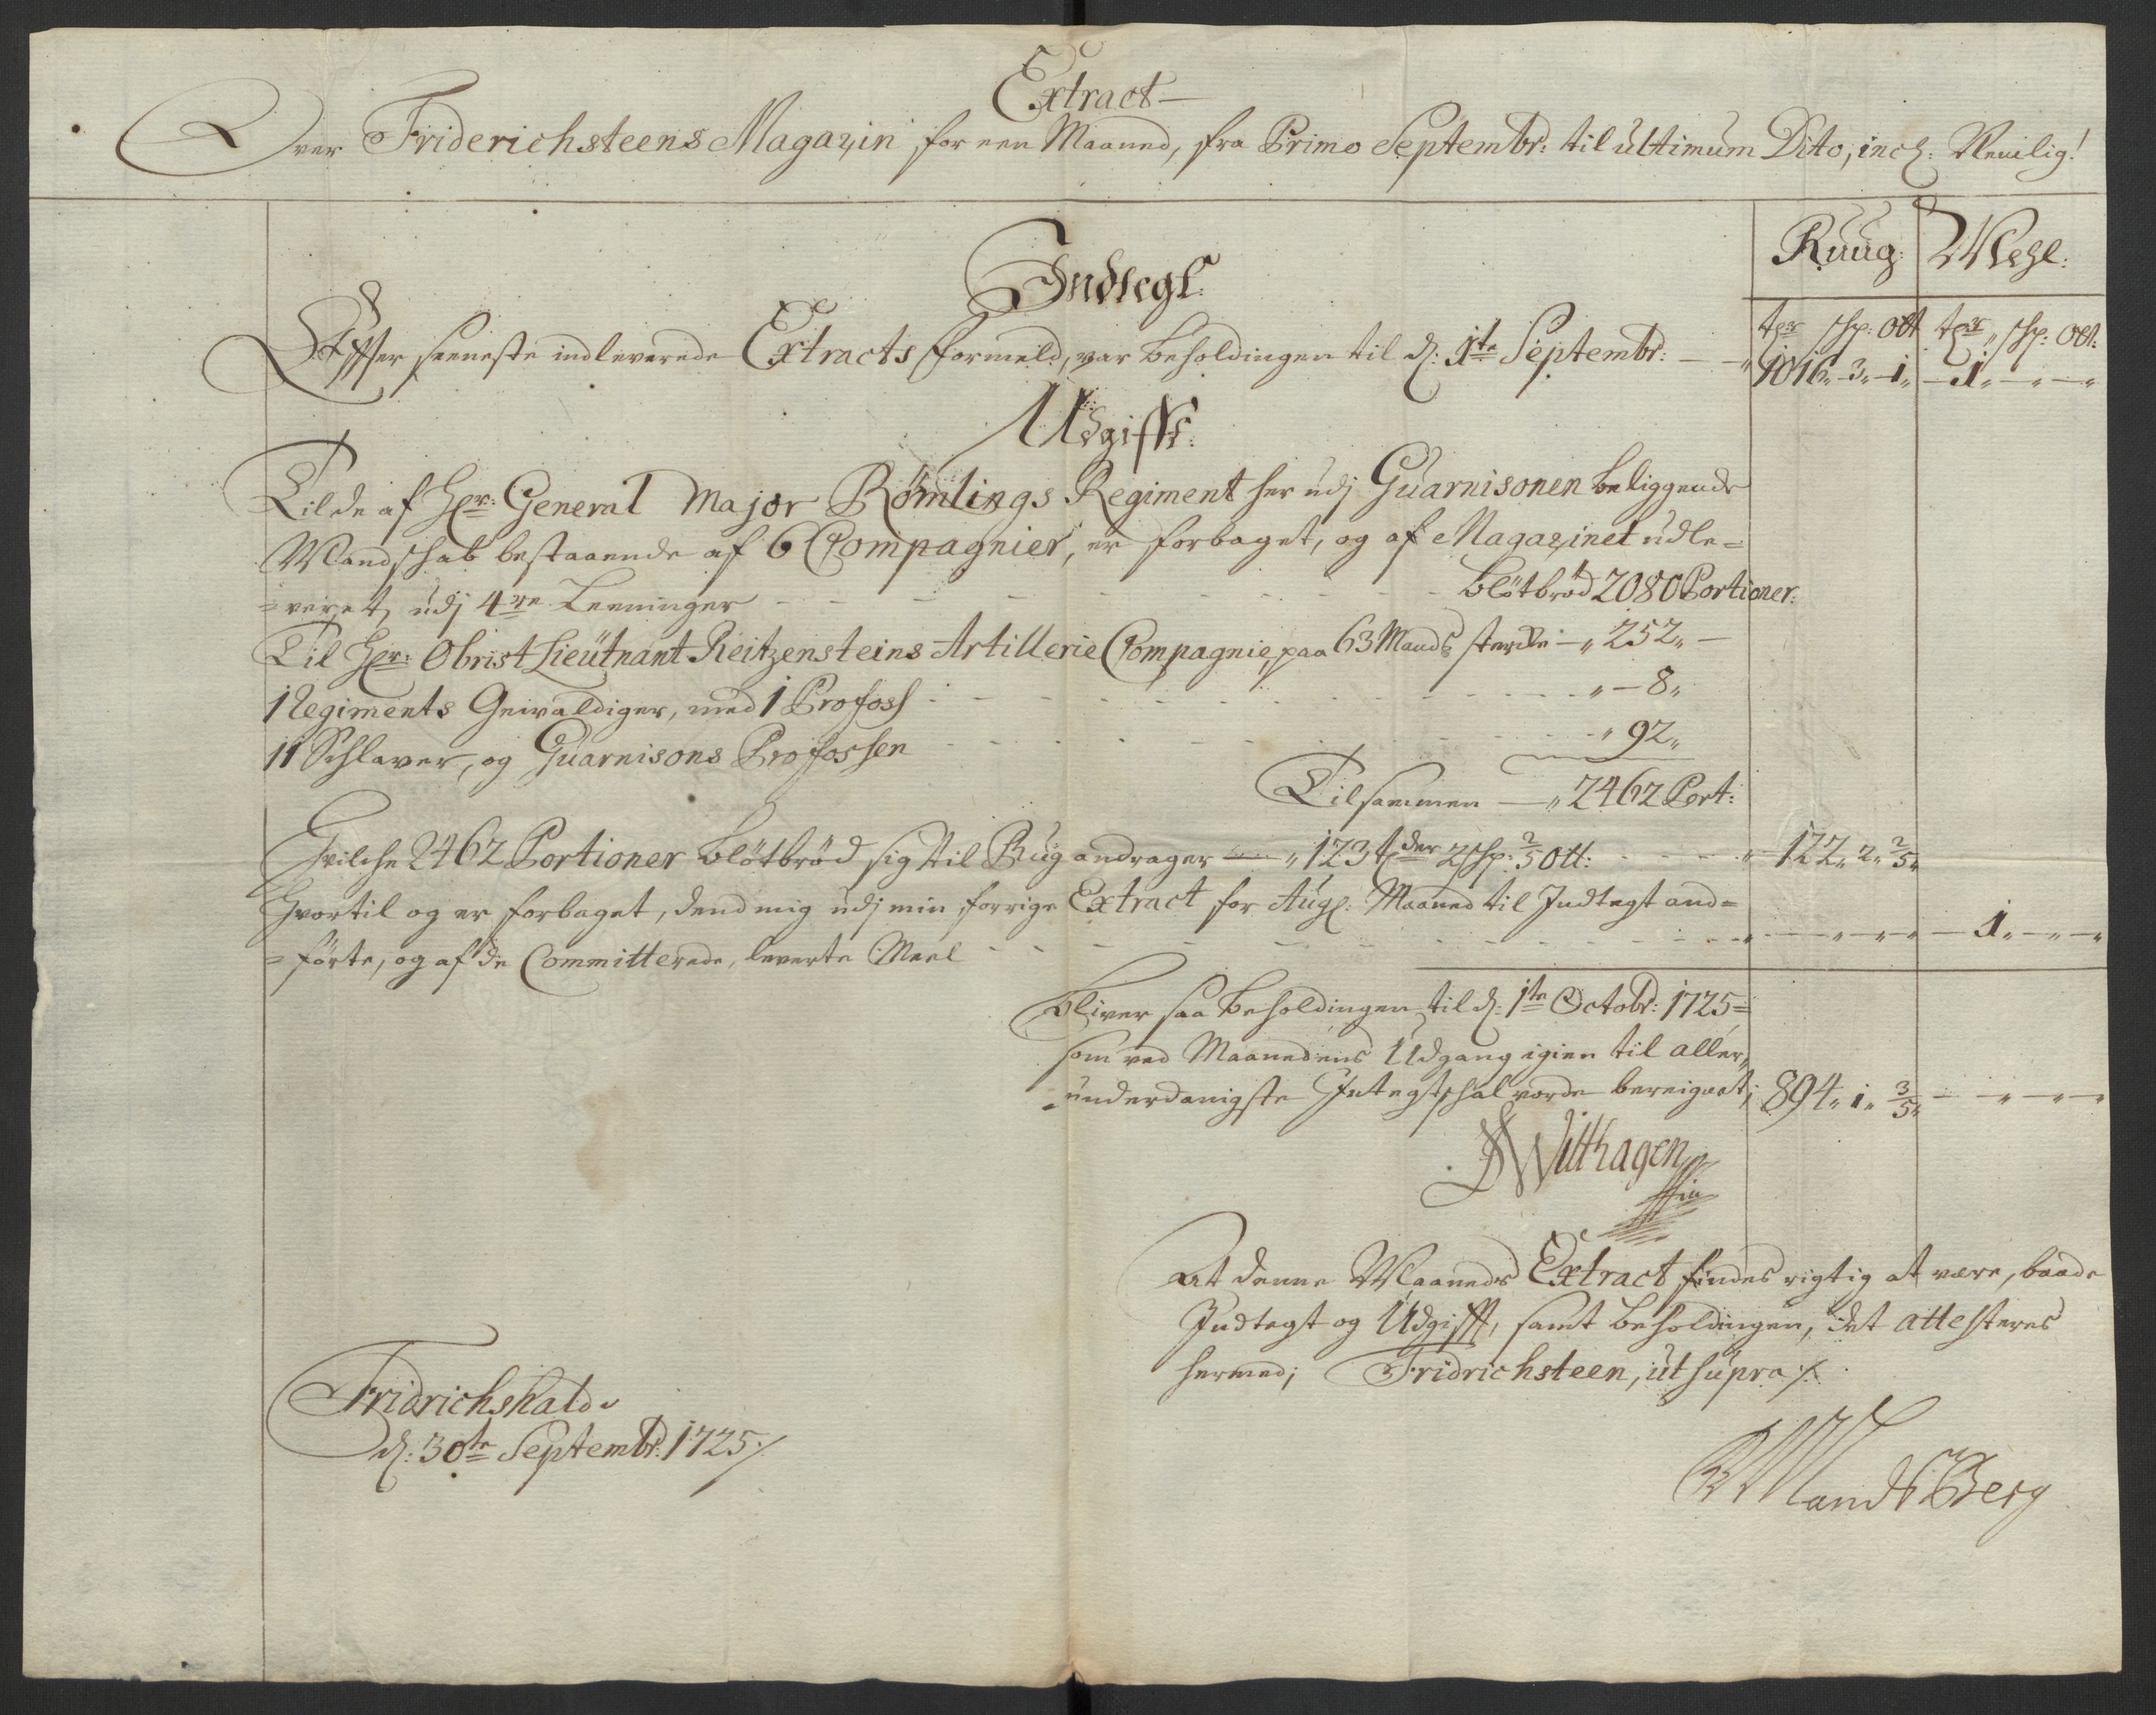 Extract
Over Friderichsteens Magazin for een Maaned, fra Primo Septembr: til ultimum Dito, incl: Nemlig!
Ruug: Mehl:
Indtegt:
tdr schp: Ott tdr schp: Ott:
Effter seeneste indleverede Extracts formeld, var beholdingen til d: 1te Septembr: — 1016„ 3„ 1„ — 1„ — „ — „
Udgifft:
Til de af Hr: General Major Römlings Regiment her udj Guarnisonen beliggende
Mandschab bestaaende af 6 Compagnier, er forbaget, og af Magazinet udle=
=veret, udj 4re Leeninger - - - blötbröd 2080 Portioner:
Til Hr: Obrist Lieutnant Reitzensteins Artillerie Compagnie, paa 63 Mands stercke — „ 252„ —
1 Regiments Gewaldiger, med 1 Profoss - - - „ — 8„
11 Schlaver, og Guarnisons Profossen - - - „ 92„
Tilsammen — „ 2462 Port:
Hvilche 2462 Portioner blötbröd sig til Rug andrager — „ 123 tder 2 schp: 2/5 Ott: - - - „ 122„ 2„ 2/5„
Hvortil og er forbaget, dend mig udj min forrige Extract for Aug: Maaned til Indtegt and=
=förte, og af de Committerede, leverte Meel - - - „ — „ — „ — „ — 1„ — „ — „
bliver saa beholdingen til d: 1te Octobr: 1725=
som ved Maanedens Udgang igien til aller„
„underdanigste Indtegt schal vorde bereignet; 894„ 1„ 3/5„ — „ — „ — „
Withagen
At denne Maaneds Extract findes rigtig at være, baade
Indtegt og Udgifft, samt beholdingen, det attesteres
hermed; Fridrichsteen, ut supra ⁒
Fridrichshald
d: 30te Septembr: 1725 ⁒
Mandt Berg